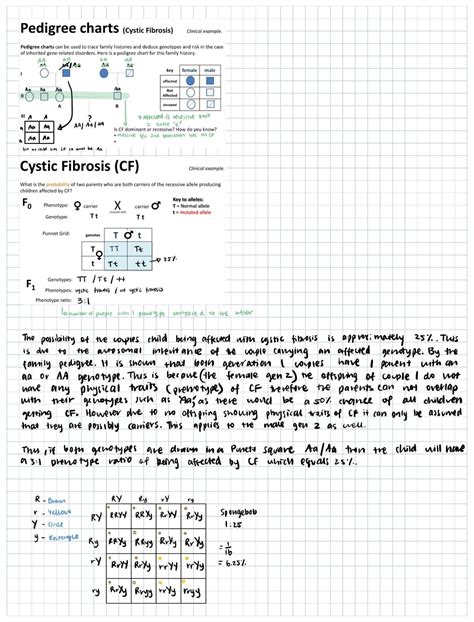 Pedigree charts (Cystic Fibrosis) Clinical example.
Pedigree charts can be used to trace family histories and deduce genotypes and risk in the case
of inherited gene-related disorders. Here is a pedigree chart for this family history.
Key female male
affected
Not
Affected
deceased
Is CF dominant or recessive? How do you know?
Cystic Fibrosis (CF) Clinical example.
What is the probability of two parents who are both carriers of the recessive allele producing
children affected by CF?
F0 Phenotype: ♀ carrier X carrier ♂
Genotype: Tt Tt
Key to alleles:
T = Normal allele
t = mutated allele
Punnet Grid: gametes T ♂ t
T TT Tt
♀
t Tt tt → 25%
F1 Genotypes: TT / Tt / tt
Phenotypes: cystic fibrosis / no cystic fibrosis
Phenotype ratio: 3:1
number of people with 1 phenotype compared to the other
The possibility of the couples child being affected with cystic fibrosis is approximately 25%. This
is due to the autosomal inheritance of the couple carrying an affected genotype. By the
family pedigree. It is shown that both generation 1 couples have 1 parent with an
aa or AA genotype. This is because (the female gen 2) the offspring of couple 1 do not
have any physical traits (phenotype) of CF therefore the parents can not overlap
with their genotypes such as as there would be a 50% chance of all children
getting CF. However due to no offspring showing physical traits of CF it can only be assumed
that they are possibly carriers. This applies to the male gen 2 as well.
Thus, if both genotypes are drawn in a Punett square Aa/Aa then the child will have
a 3:1 phenotype ratio of being affected by CF which equals 25%.
R - Brown
r - Yellow
Y - Circle
y - Rectangle
RY Ry rY ry
RY RRYY RRYy RrYY RrYy
Ry RRYy RRyy RrYy Rryy
rY RrYY RrYy rrYY rrYy
ry RrYy Rryy rrYy rryy
Spongebob
1.25
= 1/16
= 6.25%